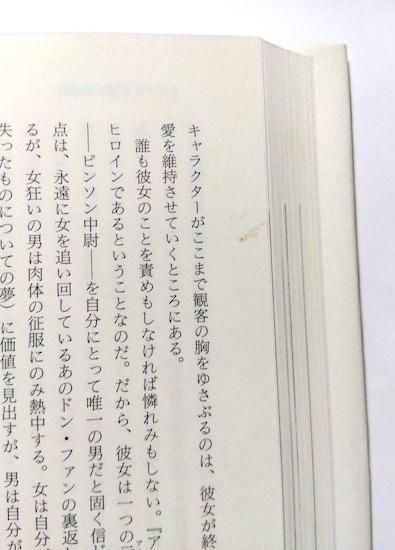 キャラクターがここまで観客の胸をゆさぶるのは、彼女が終
愛を維持させていくところにある。
誰も彼女のことを責めもしなければ憐れみもしない。『ア
ヒロインであるということなのだ。だから、彼女は一つの
――ピンソン中尉――を自分にとって唯一の男だと固く信じ
点は、永遠に女を追い回しているあのドン・ファンの裏返
るが、女狂いの男は肉体の征服にのみ熱中する。女は自分
失ったものについての夢）に価値を見出すが、男は自分が